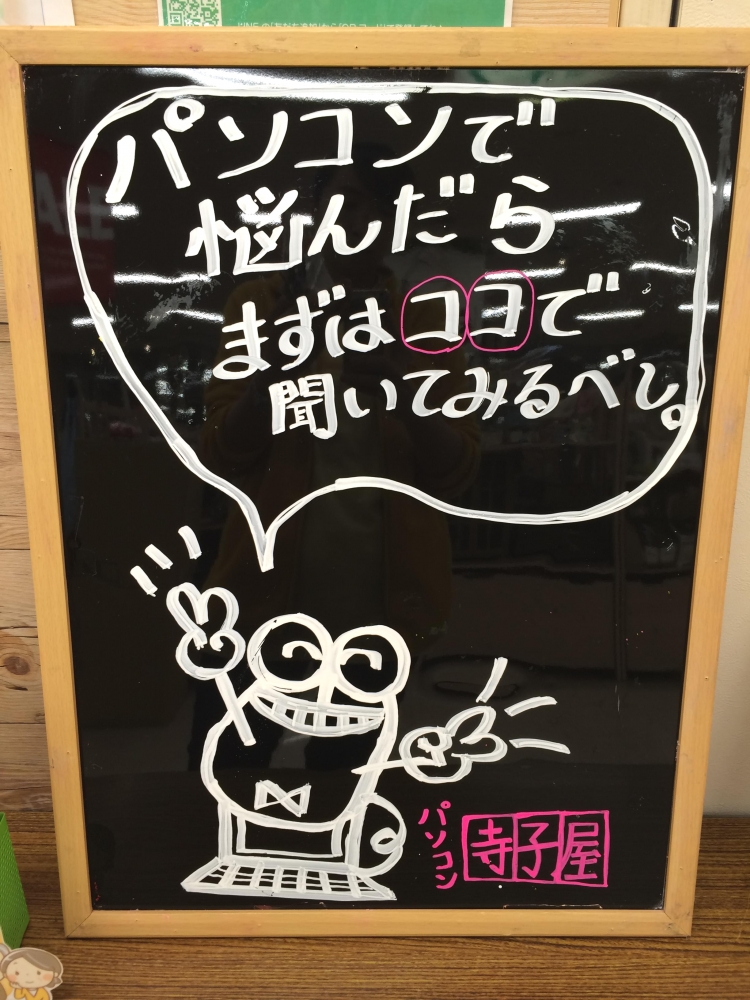 パソコンで
悩んだら
まずはココで
聞いてみるべし。
パソコン
寺子屋